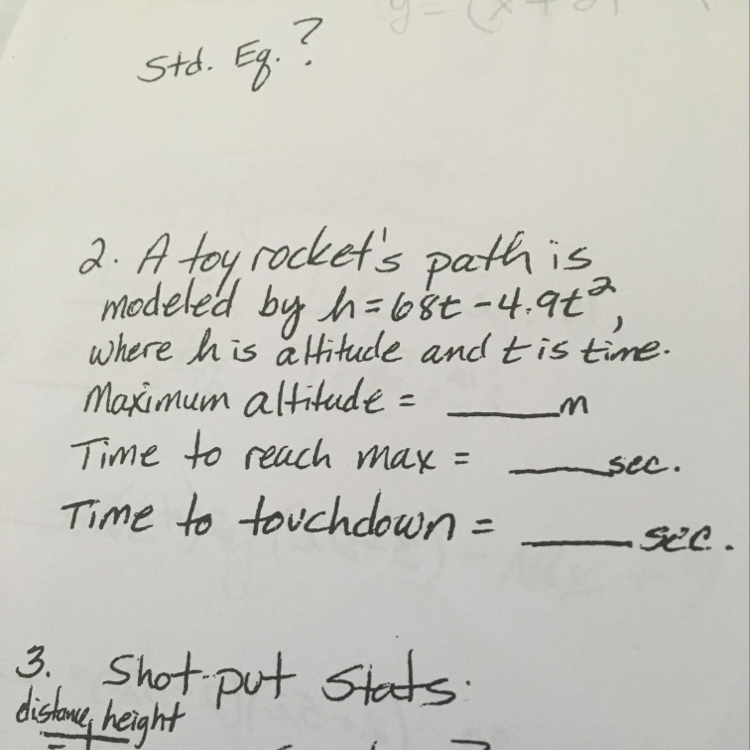 Std. Eq. ?
2. A toy rocket's path is
modeled by h=68t-4.9t²,
where h is altitude and t is time.
Maximum altitude = ______m
Time to reach max = _____sec.
Time to touchdown = _____ sec.
3. Shot-put Stats.
distance, height